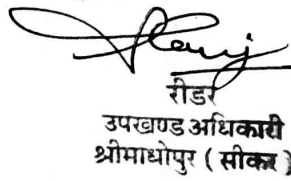 रीडर
उपखण्ड अधिकारी
श्रीमाधोपुर ( सीकर )